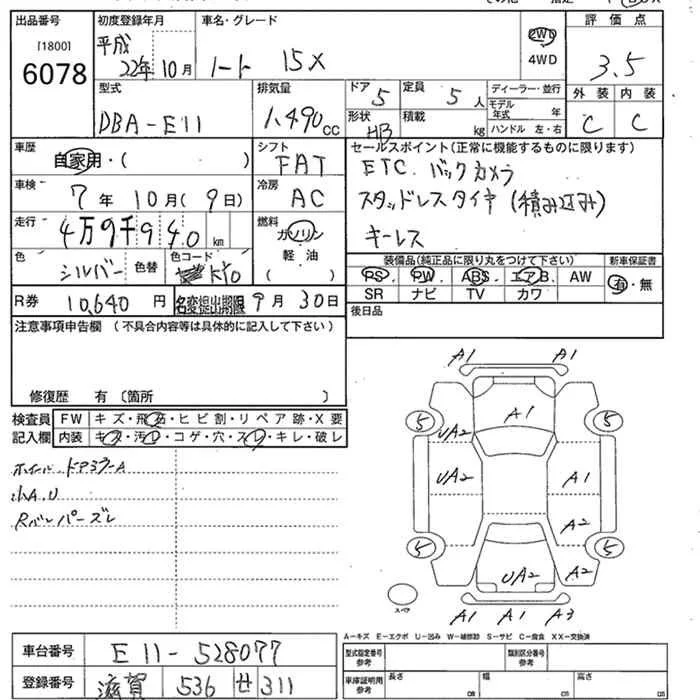 出品番号 初度登録年月 車名・グレード 評価点
[1800] 平成 2WD
6078 22年 10月 ノート 15X 4WD 3.5
型式 排気量 ドア 5 定員 5人 ディーラー・並行 外装 内装
モデル年式 年
DBA-E11 1,490cc 形状 HB 積載 kg ハンドル 左・右 C C
車歴 自家用・( ) シフト FAT セールスポイント(正常に機能するものに限ります)
ETC. バックカメラ
車検 7年 10月(9日) 冷房 AC スタッドレスタイヤ (積み込み)
走行 4万9千940km 燃料 ガソリン キーレス
色 シルバー 色替 色コード K10 軽油 ( ) 装備品(純正品に限り丸をつけて下さい) 新車保証書
PS PW ABS エアB. AW 有・無
SR ナビ TV カワ
R券 10,640円 名変提出期限 9月30日 後日品
注意事項申告欄 (不具合内容等は具体的に記入して下さい)
修復歴 有 (箇所 )
検査員 FW キズ・飛石・ヒビ割・リペア跡・X要
記入欄 内装 キズ・汚レ・コゲ・穴・スレ・キレ・破レ
小A.U
A1 A1
A1
5 5
UA2
UA2 A1
A2
5 5
UA2 A2
スペア
A1 A1 A3
A-キズ E-エクボ U-凹み W-補修跡 S-サビ C-腐食 XX-交換済
車台番号 E11-528077 型式指定番号 参考 類別区分番号 参考
登録番号 滋賀 536 せ 311 車庫証明用 参考 長さ cm 幅 cm 高さ cm